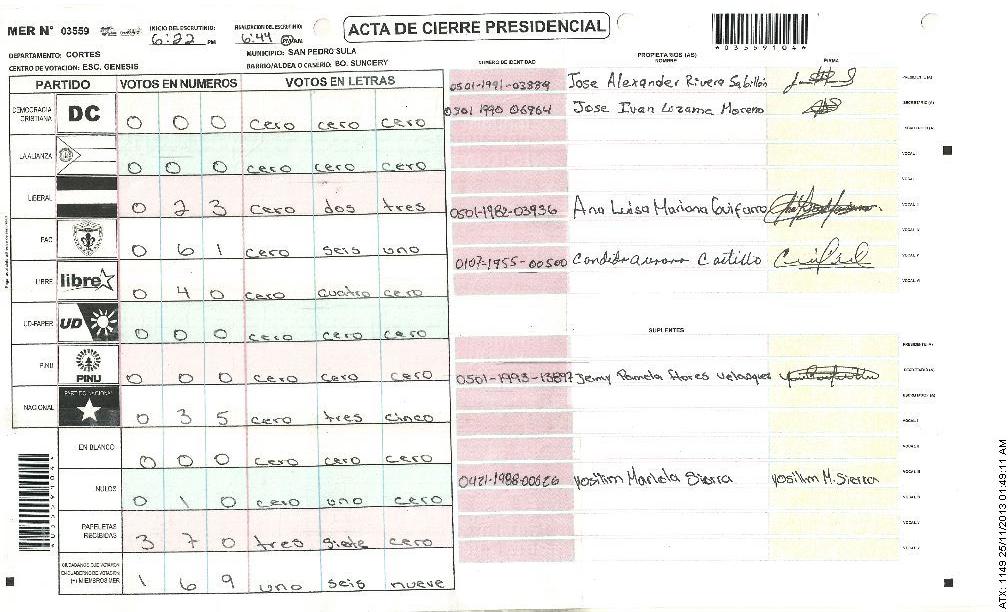 MER N° 03559
INICIO DEL ESCRUTINIO:
6:22 PM
FINALIZACION DEL ESCRUTINIO:
6:44 PM AM
ACTA DE CIERRE PRESIDENCIAL
*03559104*
DEPARTAMENTO: CORTES
MUNICIPIO: SAN PEDRO SULA
CENTRO DE VOTACION: ESC. GENESIS
BARRIO/ALDEA O CASERIO: BO. SUNCERY
PARTIDO VOTOS EN NUMEROS VOTOS EN LETRAS
DEMOCRACIA CRISTIANA DC 0 0 0 cero cero cero
LA ALIANZA 0 0 0 cero cero cero
LIBERAL 0 23 cero dos tres
PAC 0 6 1 cero seis uno
LIBRE libre 0 4 0 cero cuatro cero
UD-FAPER UD 0 0 0 cero cero cero
PINU PINU 0 0 0 cero cero cero
NACIONAL PARTIDO NACIONAL 0 3 5 cero tres cinco
EN BLANCO 0 0 0 cero cero cero
NULOS 0 1 0 cero uno cero
PAPELETAS RECIBIDAS 3 7 0 tres siete cero
CIUDADANOS QUE VOTARON EN CUADERNO DE VOTACION (+) MIEMBROS MER 1 6 9 uno seis nueve
NUMERO DE IDENTIDAD
PROPIETARIOS (AS)
NOMBRE
FIRMA
0501-1991-03889 Jose Alexander Rivera Sabillón PRESIDENTE (A)
0501 1990 06864 Jose Ivan Lozama Moreno SECRETARIO (A)
VOCAL I
0501-1982-03936 Ana Luisa Mariana Guifarro
0107-1955-00500 Candida aurora Castillo
SUPLENTES
PRESIDENTE (A)
0501-1993-13897 Jenny Pamela Flores Velasquez
SECRETARIO (A)
VOCAL I
VOCAL II
0421-1988-00626 Yosilim Mariela Sierra Yosilim M. Sierra VOCAL III
*03559104*
ATX: 1149 25/11/2013 01:49:11 AM